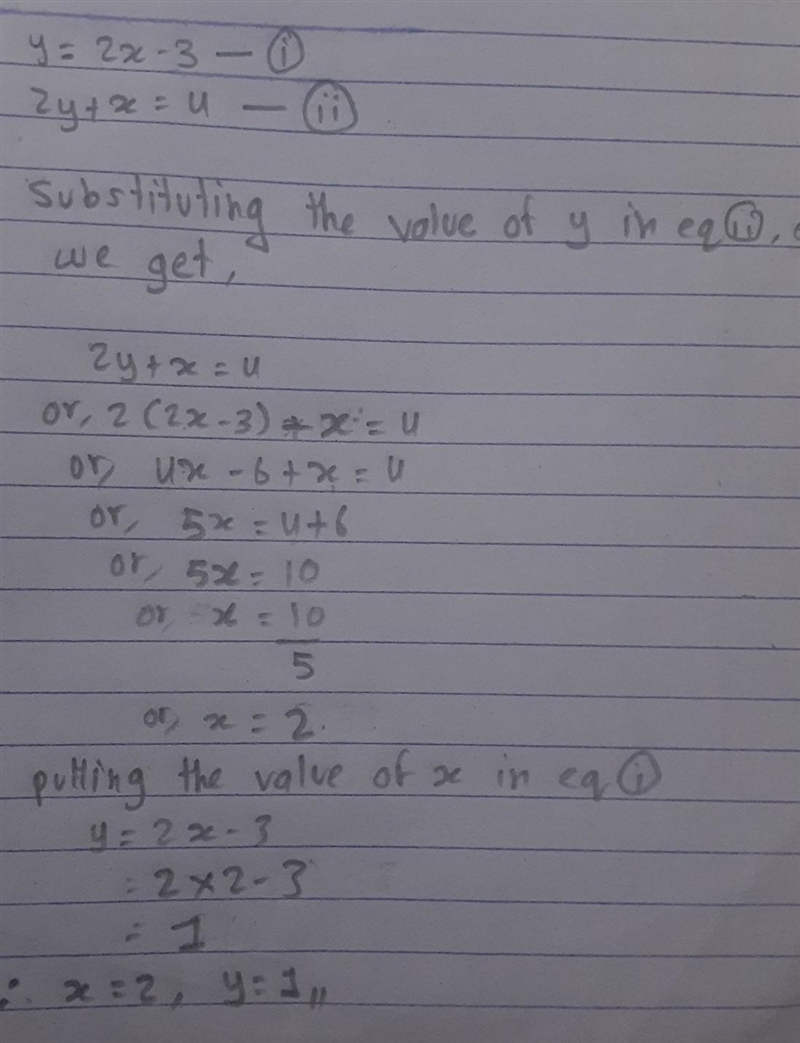 y = 2x - 3 — (i)
2y + x = 4 — (ii)
Substituting the value of y in eq (ii),
we get,
2y + x = 4
or, 2 (2x - 3) + x = 4
or, 4x - 6 + x = 4
or, 5x = 4 + 6
or, 5x = 10
or, x = 10
5
or, x = 2.
putting the value of x in eq (i)
y = 2x - 3
= 2 × 2 - 3
= 1
∴ x = 2, y = 1,,